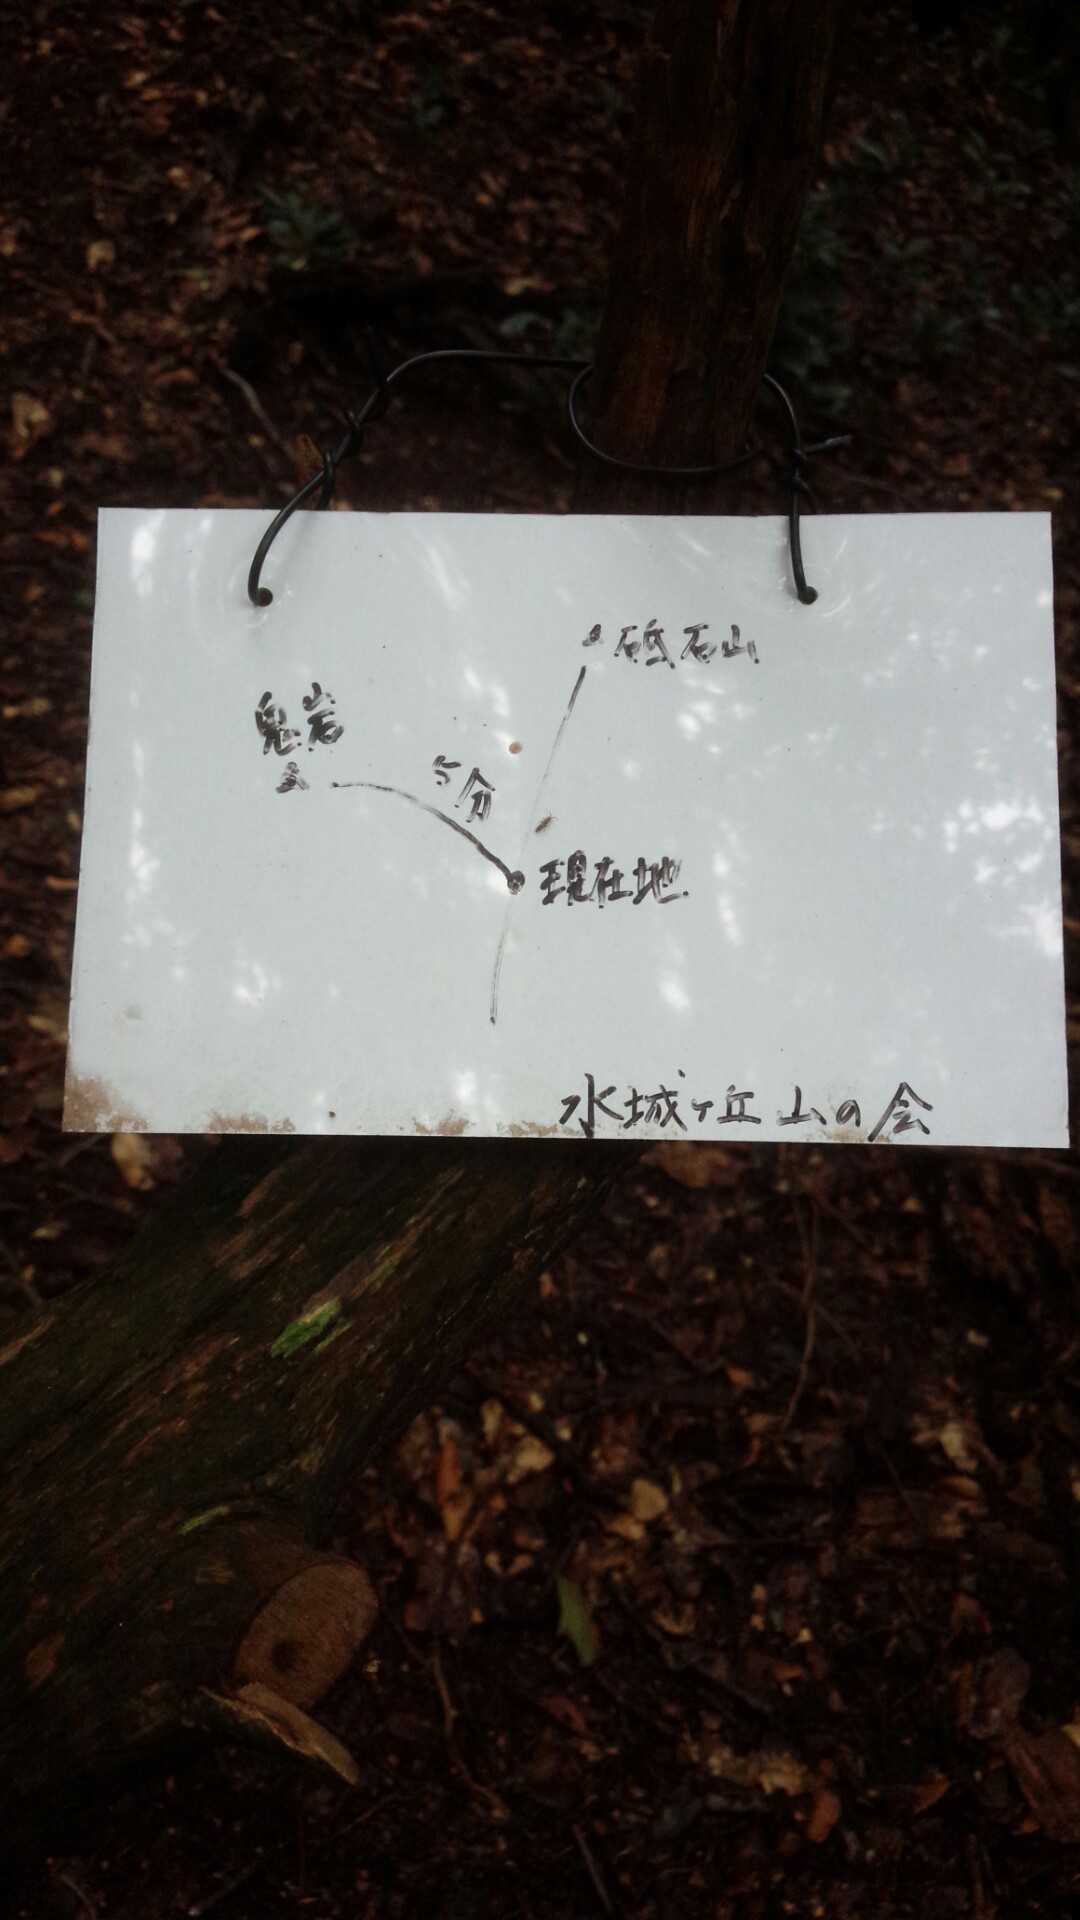 砥石山
鬼岩
5分
現在地
水城ヶ丘山の会